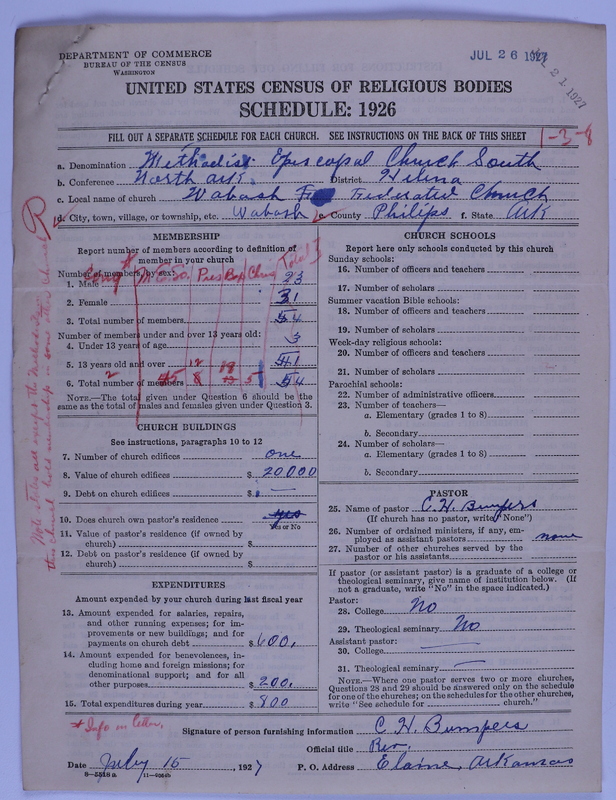 DEPARTMENT OF COMMERCE
BUREAU OF THE CENSUS
WASHINGTON
JUL 26 1927
JUL 21 1927
UNITED STATES CENSUS OF RELIGIOUS BODIES
SCHEDULE: 1926
FILL OUT A SEPARATE SCHEDULE FOR EACH CHURCH. SEE INSTRUCTIONS ON THE BACK OF THIS SHEET
1-3-8
a. Denomination Methodist Episcopal Church South
b. Conference North Ark. District Helena
c. Local name of church Wabash Federated Church
d. City, town, village, or township, etc. Wabash e. County Philips f. State Ark
R
MEMBERSHIP
Report number of members according to definition of member in your church
Number of members by sex:
M.E.So. Pres Bap Total
1. Male 23
2. Female 31
3. Total number of members 54
Number of members under and over 13 years old:
4. Under 13 years of age 3
5. 13 years old and over 41
6. Total number of members 54
NOTE.—The total given under Question 6 should be the
same as the total of males and females given under Question 3.
CHURCH BUILDINGS
See instructions, paragraphs 10 to 12
7. Number of church edifices one
8. Value of church edifices $ 20000
9. Debt on church edifices $ —
10. Does church own pastor's residence yes
Yes or No
11. Value of pastor's residence (if owned by
church) $
12. Debt on pastor's residence (if owned by
church) $
EXPENDITURES
Amount expended by your church during last fiscal year
13. Amount expended for salaries, repairs,
and other running expenses; for im-
provements or new buildings; and for
payments on church debt $ 600.
14. Amount expended for benevolences, in-
cluding home and foreign missions; for
denominational support; and for all
other purposes $ 200.
15. Total expenditures during year $ 800
CHURCH SCHOOLS
Report here only schools conducted by this church
Sunday schools:
16. Number of officers and teachers
17. Number of scholars
Summer vacation Bible schools:
18. Number of officers and teachers
19. Number of scholars
Week-day religious schools:
20. Number of officers and teachers
21. Number of scholars
Parochial schools:
22. Number of administrative officers
23. Number of teachers—
a. Elementary (grades 1 to 8)
b. Secondary
24. Number of scholars—
a. Elementary (grades 1 to 8)
b. Secondary
PASTOR
25. Name of pastor C. H. Bumpers
(If church has no pastor, write "None")
26. Number of ordained ministers, if any, em-
ployed as assistant pastors none
27. Number of other churches served by the
pastor or his assistants
If pastor (or assistant pastor) is a graduate of a college or
theological seminary, give name of institution below. (If
not a graduate, write "No" in the space indicated.)
Pastor:
28. College No
29. Theological seminary No
Assistant pastor:
30. College —
31. Theological seminary —
NOTE.—Where one pastor serves two or more churches,
Questions 28 and 29 should be answered only on the schedule
for one of the churches; on the schedules for the other churches,
write "See schedule for church."
* Info in letter.
Signature of person furnishing information C. H. Bumpers
Official title Rev.
Date July 15, 1927 P. O. Address Elaine, Arkansas